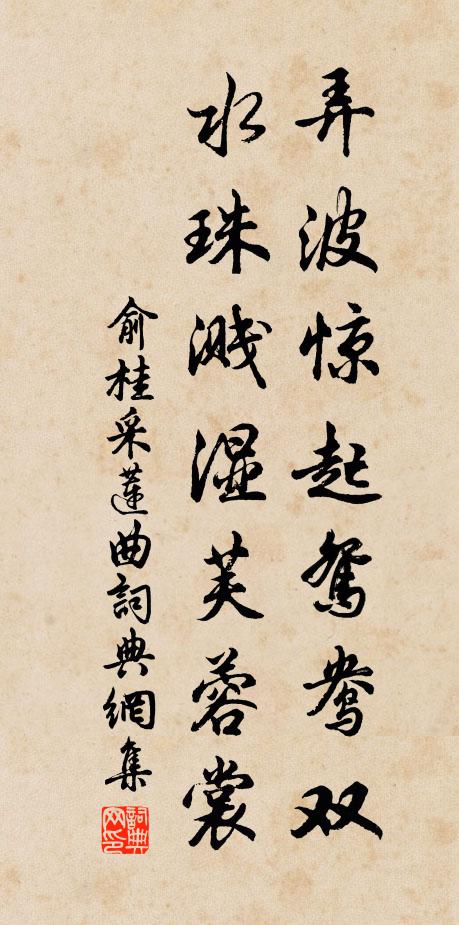 弄波惊起鸳鸯双
水珠溅湿芙蓉裳
俞桂采蓮曲詞典網集
詞典网印